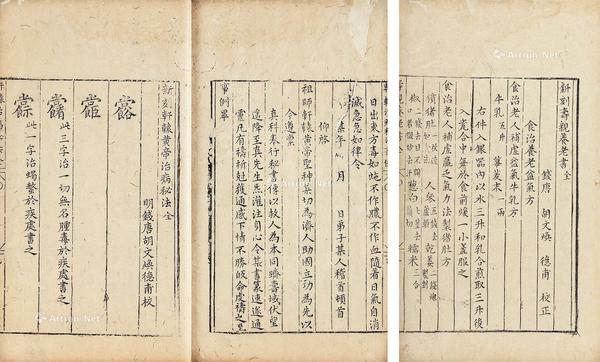 新刻壽親養老書全
錢唐 胡文煥 德甫 校正
食治養老益氣方
食治老人補虛益氣牛乳方
牛乳五升 蓽茇末一兩
右件入銀器內以水三升和乳合煎取三升後
入瓷合中每於食前暖一小盞服之
食治老人補虛羸乏氣力法製猪肚方
猪肚 人參 乾薑
椒二錢 葱白 糯米三合
日出東方毒如蚘不作膿不作血隨着日氣自消
滅急急如律令
某年 月 日弟子某人稽首頓首
仰啓
祖師軒轅黃帝聖神某切為濟人助國立功為先以
今遵
真科奉行秘書傳以故人為本同躋壽域伏望
遙降至真先生炁灌注負心令某書篆速遂通
靈凡有禱祈尅獲通感下情不勝皈命虔禱之至
事例畢
新刻軒轅黃帝治病秘法全
明錢唐胡文煥德甫校
此三字治一切無名腫毒於疾處書之
此一字治蝎螫於疾處書之